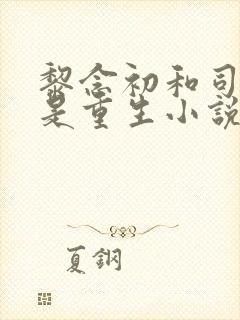 黎念初和司
是重生小說
夏鋼